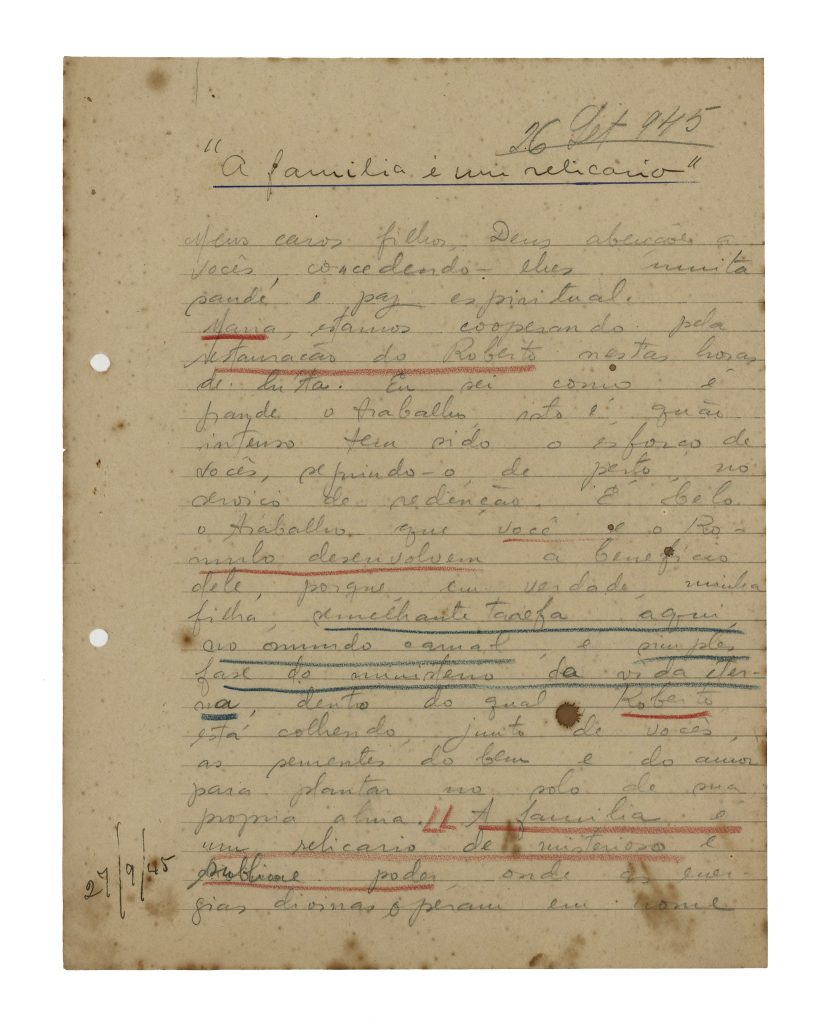 26 Set 945
"A familia é um relicario"
Meus caros filhos, Deus abençôe a
vocês, concedendo-lhes muita
saude e paz espiritual.
Maria, estamos cooperando pela
restauração do Roberto nestas horas
de luta. Eu sei como é
grande o trabalho, isto é, quão
intenso tem sido o esforço de
vocês, seguindo-o de perto, no
serviço de redenção. É belo
o trabalho que você e o Ro-
mulo desenvolvem a beneficio
dele, porque, em verdade, minha
filha, semelhante tarefa aqui,
no mundo carnal, é simples
fase do ministerio da vida eter-
na, dentro do qual Roberto
está colhendo, junto de vocês,
as sementes do bem e do amor
para plantar no solo de sua
propria alma. A familia é
um relicario de misterioso e
sublime poder, onde as ener-
gias divinas operam em nome
27/9/45